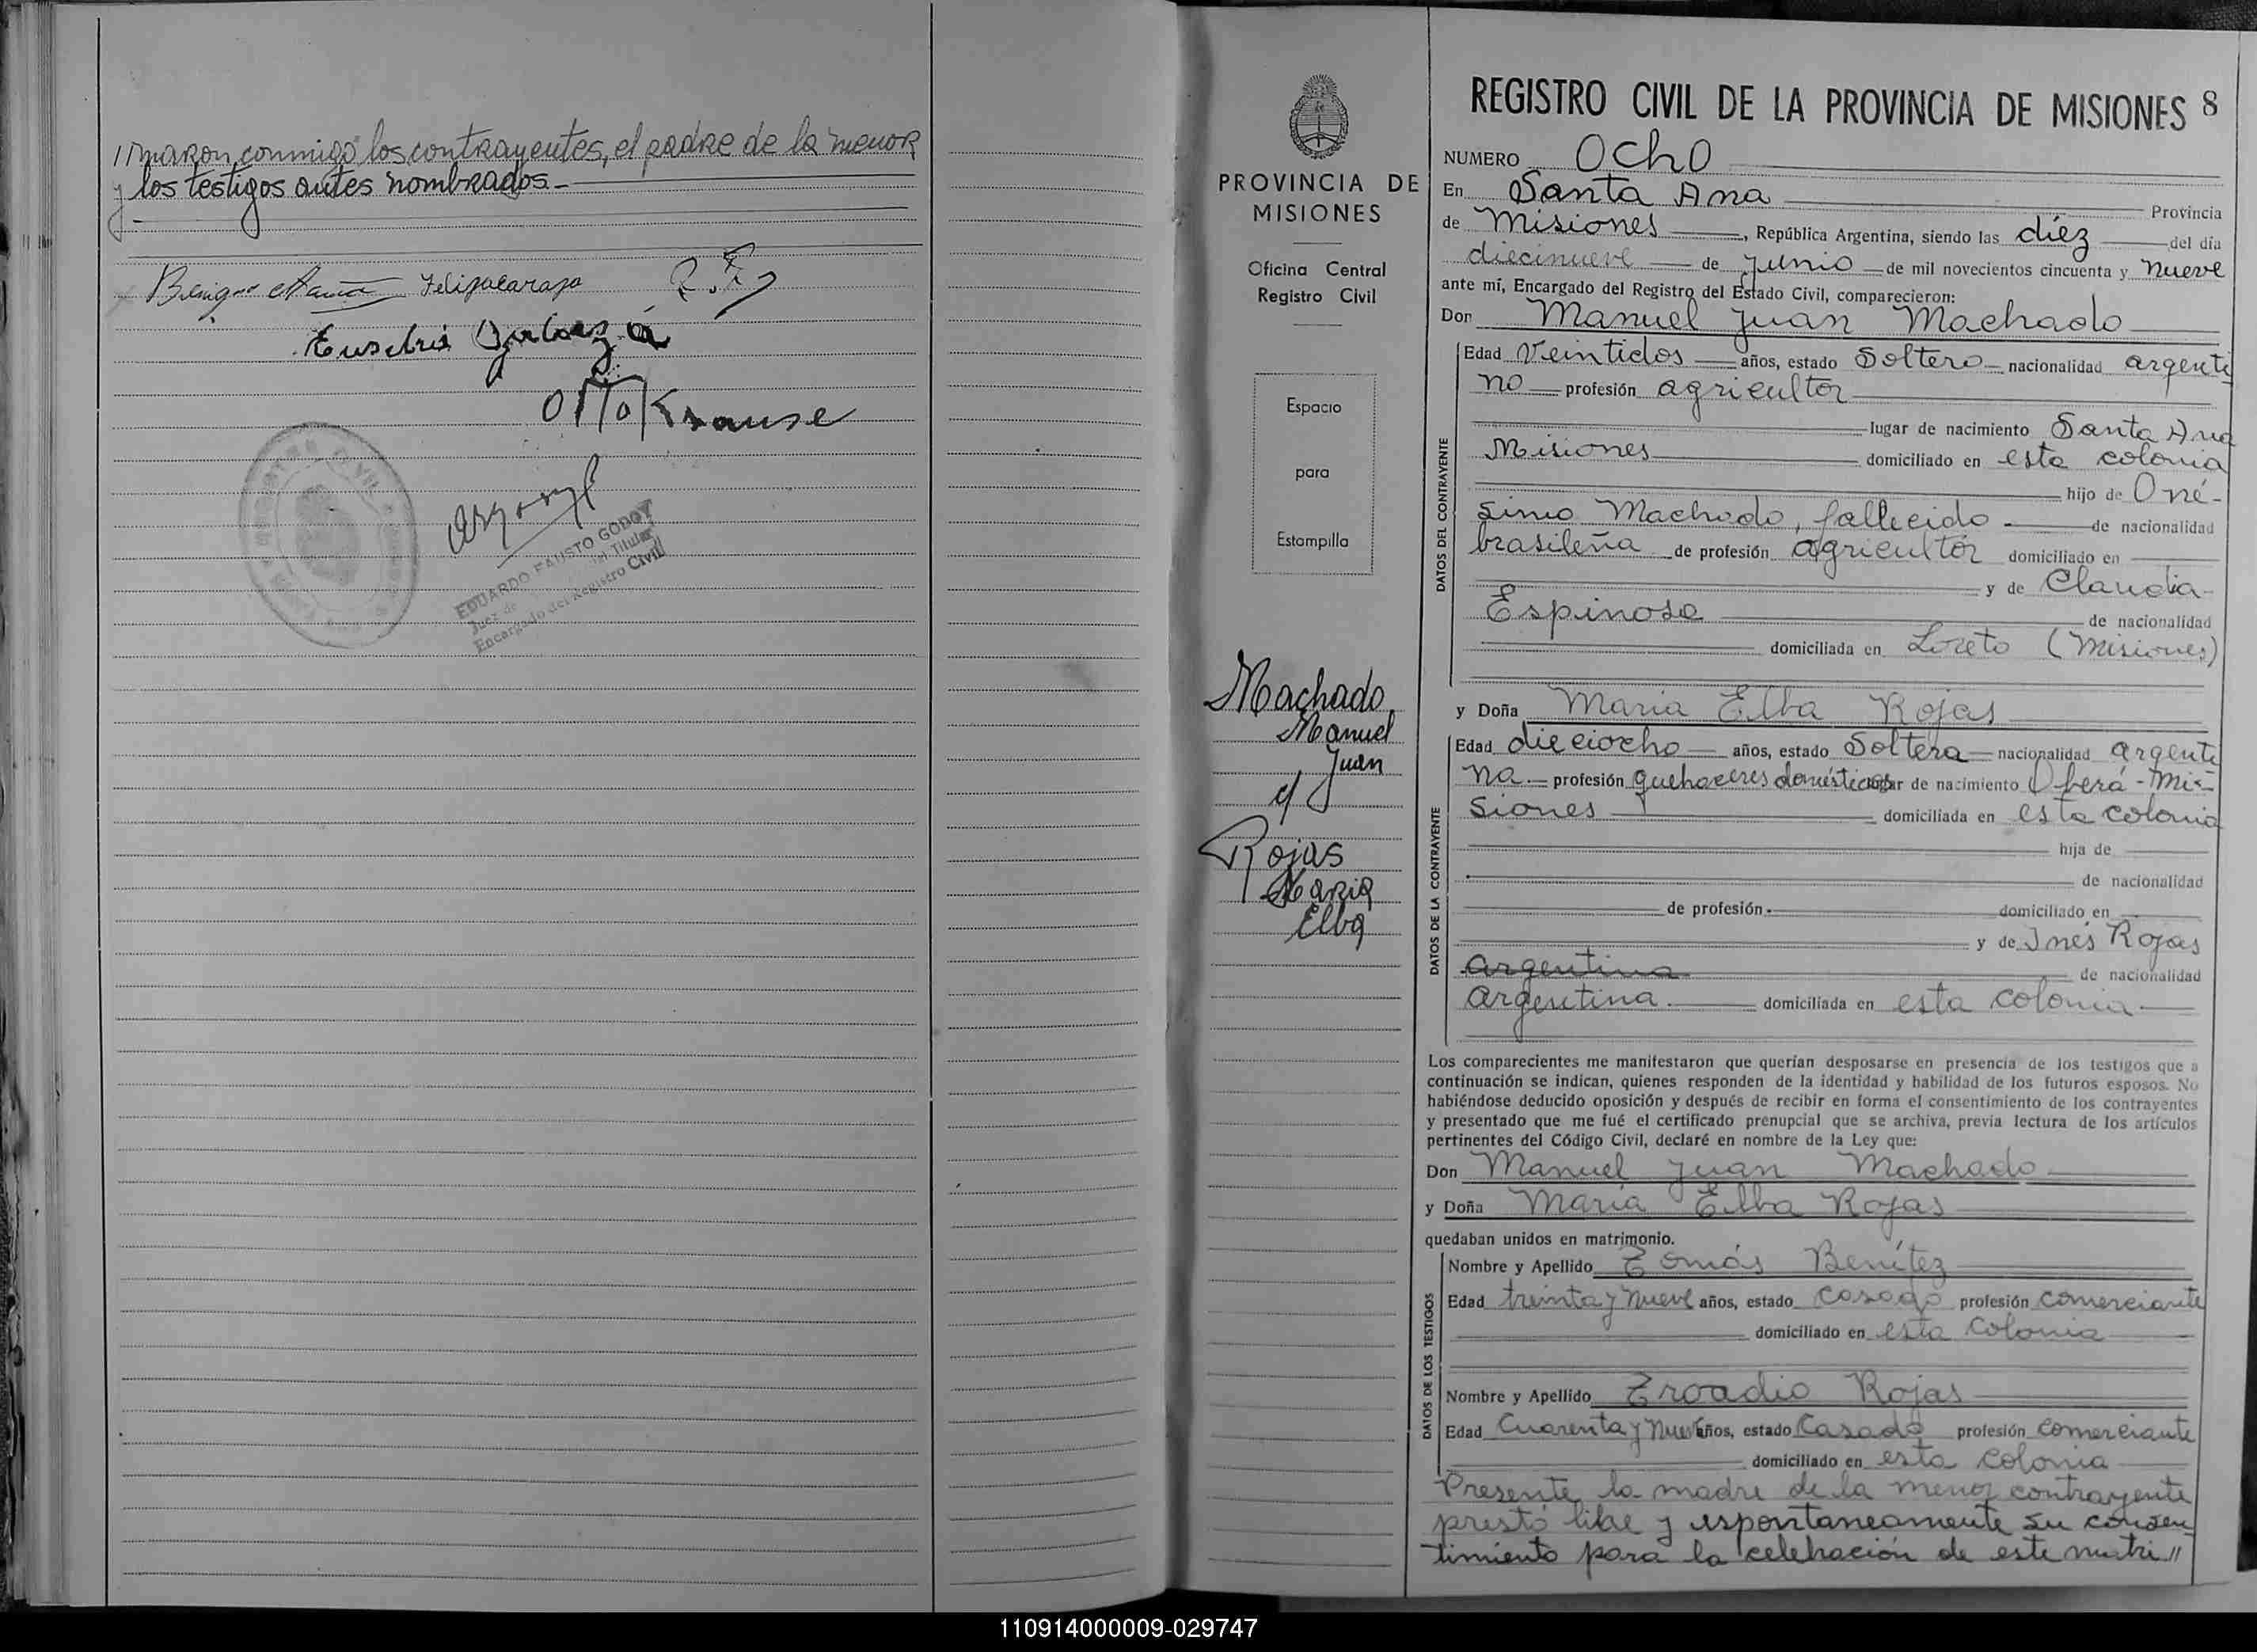 maron conmigo los contrayentes, el padre de la menor
y los testigos antes nombrados.-
Otto Krause
EDUARDO FAUSTO GODOY
Juez de
Encargado del Registro Civil
PROVINCIA DE
MISIONES
Oficina Central
Registro Civil
Espacio
para
Estampilla
Machado
Manuel
Juan
y
Rojas
Maria
Elba
REGISTRO CIVIL DE LA PROVINCIA DE MISIONES 8
NUMERO Ocho
En Santa Ana Provincia
de Misiones, República Argentina, siendo las diéz del día
diecinueve de Junio de mil novecientos cincuenta y nueve
ante mí, Encargado del Registro del Estado Civil, comparecieron:
Don Manuel Juan Machado
Edad Veintidos años, estado Soltero nacionalidad argenti
no profesión agricultor
lugar de nacimiento Santa Ana
Misiones domiciliado en esta colonia
hijo de Oné-
simo Machado, fallecido de nacionalidad
brasileña de profesión agricultor domiciliado en
y de Claudia
Espinosa de nacionalidad
domiciliada en Loreto (Misiones)
DATOS DEL CONTRAYENTE
y Doña María Elba Rojas
Edad dieciocho años, estado Soltera nacionalidad argenti
na profesión quehaceres domésticos lugar de nacimiento Oberá - Mi-
siones domiciliada en esta colonia
hija de
de nacionalidad
de profesión domiciliado en
y de Inés Rojas
argentina de nacionalidad
argentina domiciliada en esta colonia
DATOS DE LA CONTRAYENTE
Los comparecientes me manifestaron que querían desposarse en presencia de los testigos que a
continuación se indican, quienes responden de la identidad y habilidad de los futuros esposos. No
habiéndose deducido oposición y después de recibir en forma el consentimiento de los contrayentes
y presentado que me fué el certificado prenupcial que se archiva, previa lectura de los artículos
pertinentes del Código Civil, declaré en nombre de la Ley que:
Don Manuel Juan Machado
y Doña María Elba Rojas
quedaban unidos en matrimonio.
Nombre y Apellido Tomás Benítez
Edad treinta y nueve años, estado casado profesión comerciante
domiciliado en esta colonia
Nombre y Apellido Eroadio Rojas
Edad Cuarenta y nueve años, estado Casado profesión comerciante
domiciliado en esta colonia
DATOS DE LOS TESTIGOS
Presente la madre de la menor contrayente
prestó libre y espontaneamente su consen
timiento para la celebración de este matri//
110914000009-029747